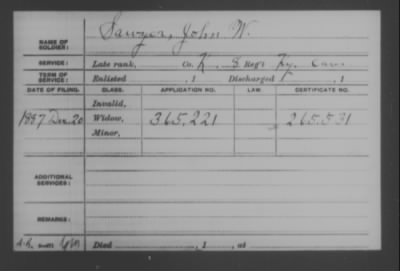 NAME OF SOLDIER: Sawyer, John W.
SERVICE: Late rank, Co. K, 8 Reg't Ky. Cav.
TERM OF SERVICE: Enlisted , 1 Discharged , 1
DATE OF FILING. CLASS. APPLICATION NO. LAW. CERTIFICATE NO.
Invalid,
1887 Dec 20 Widow, 365,221 265,531
Minor,
ADDITIONAL SERVICES:
REMARKS:
Died , 1 , at